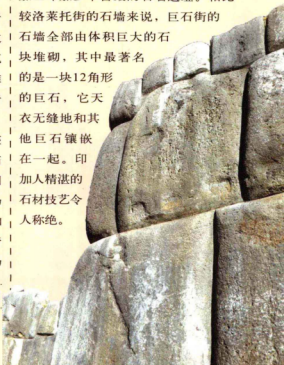 较洛莱托街的石墙来说，巨石街的
石墙全部由体积巨大的石
块堆砌，其中最著名
的是一块12角形
的巨石，它天
衣无缝地和其
他巨石镶嵌
在一起。印
加人精湛的
石材技艺令
人称绝。